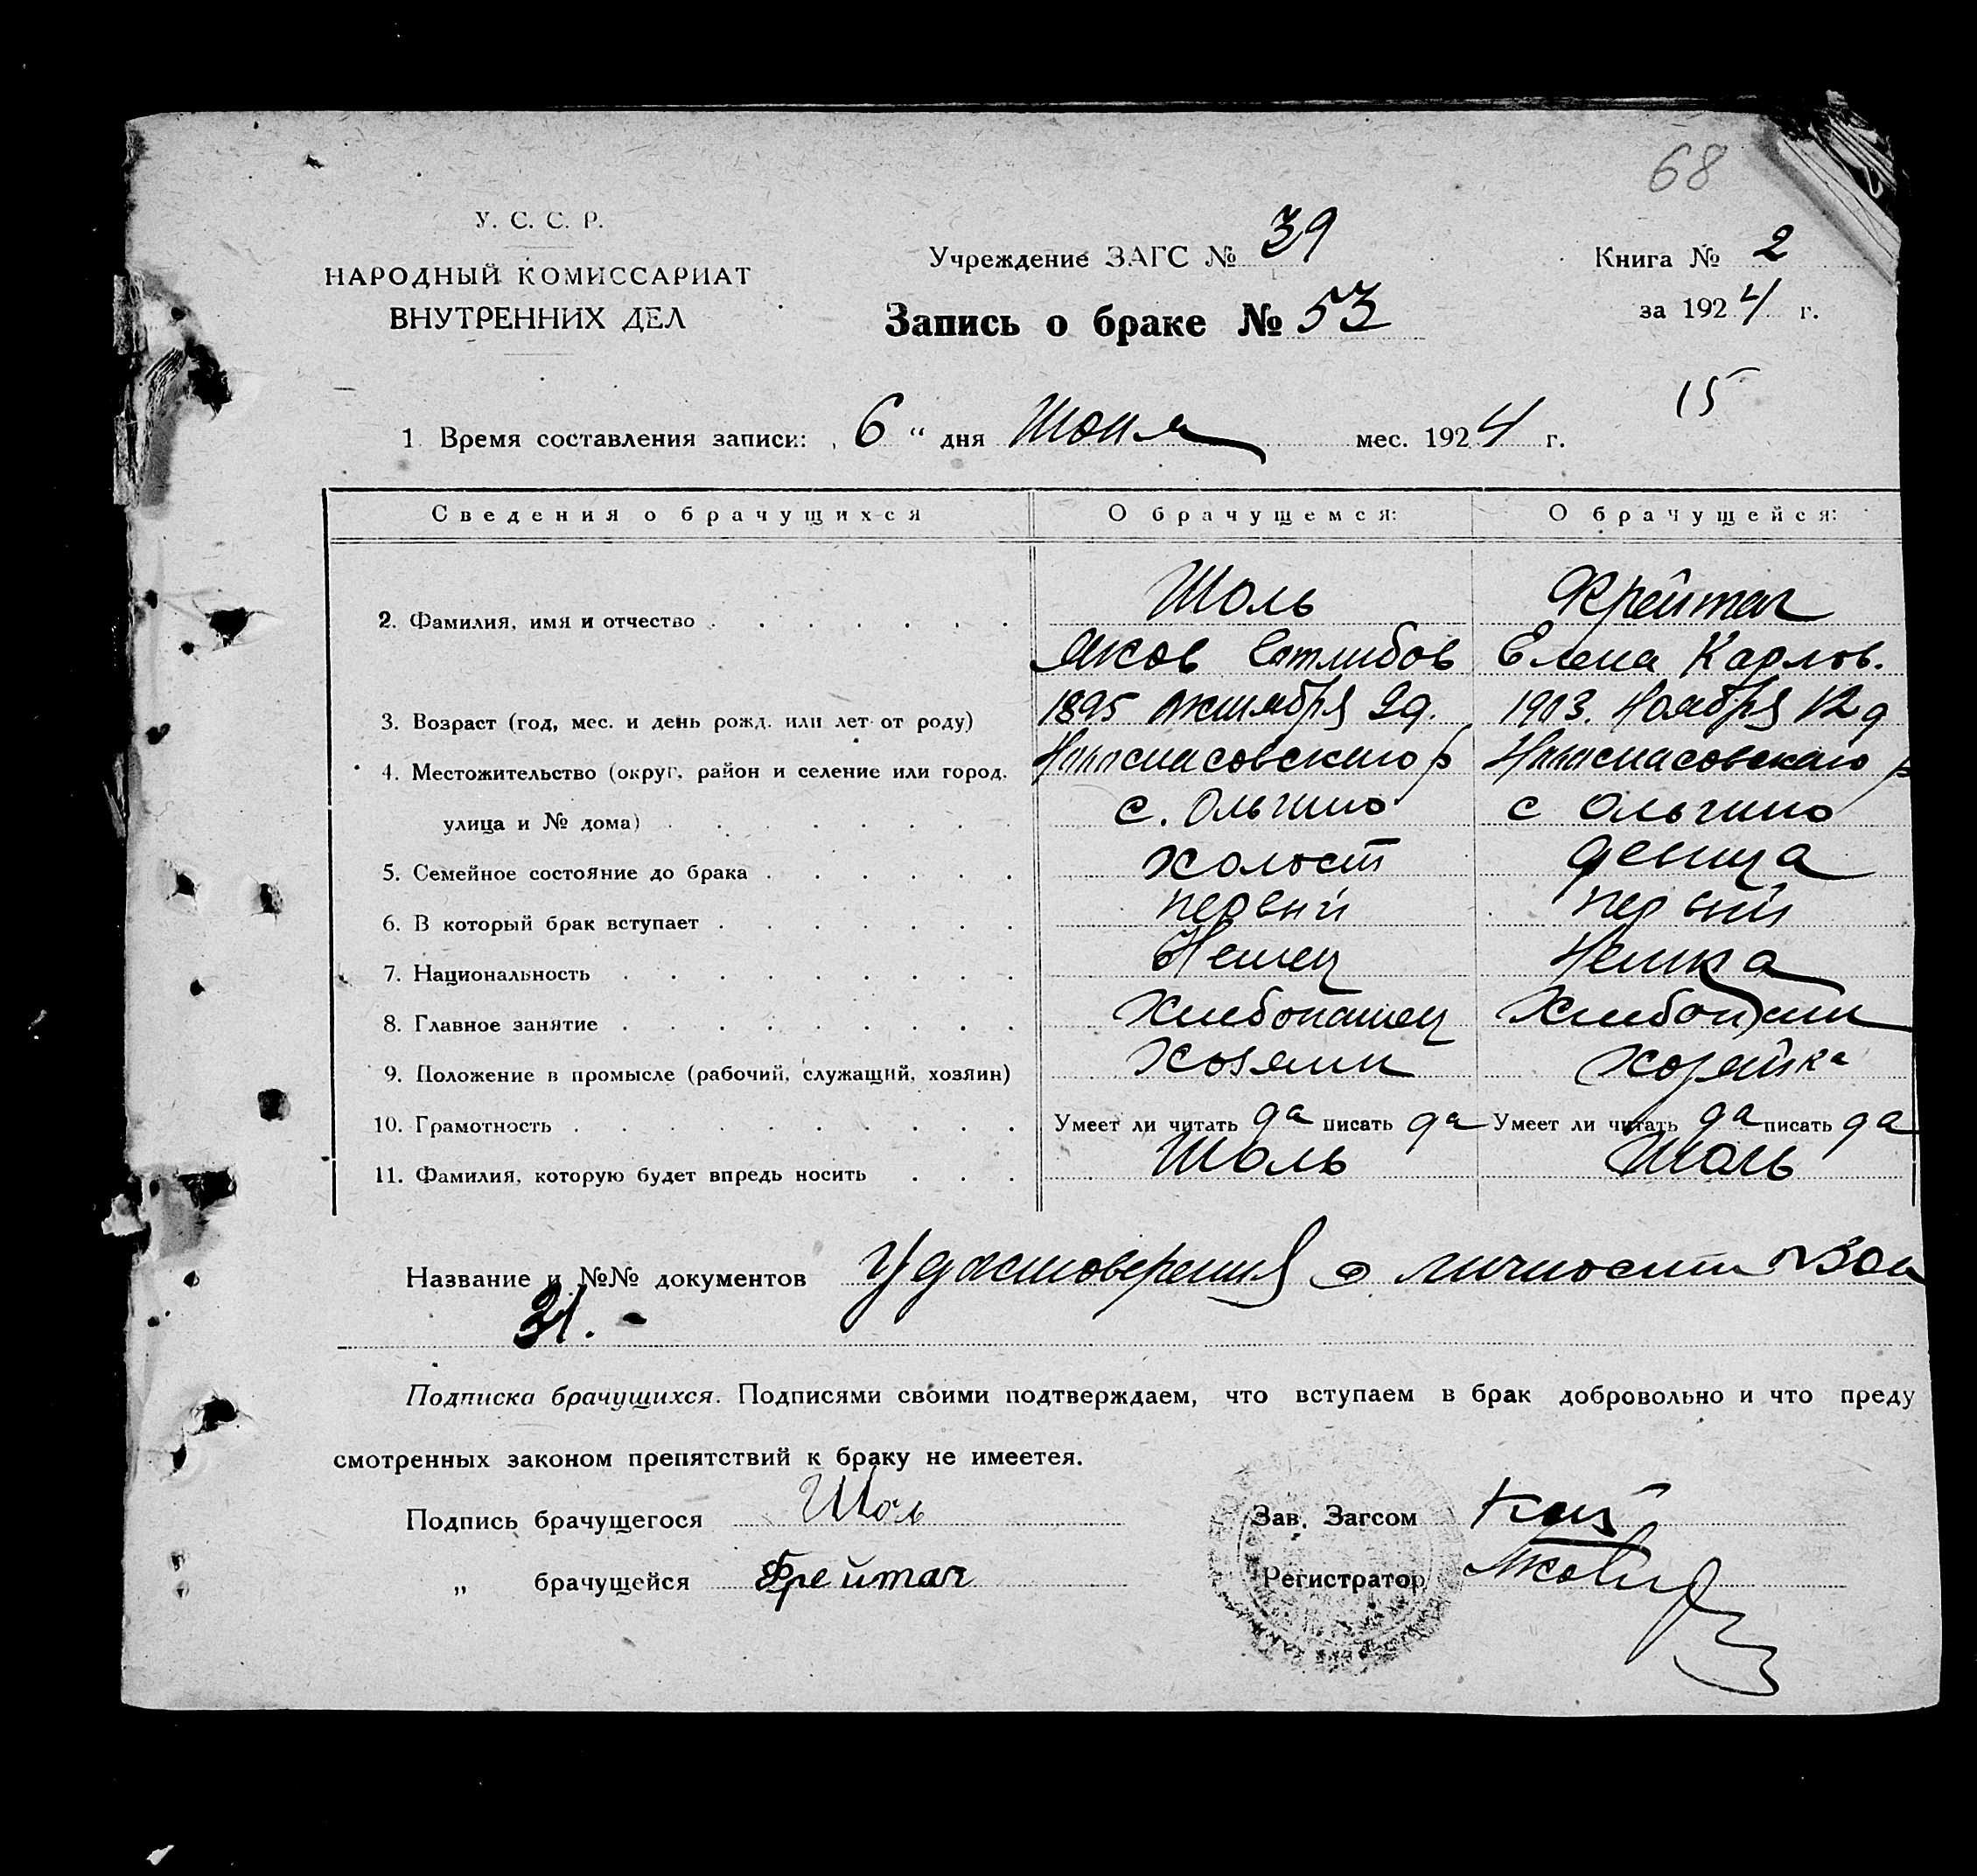 68
У. С. С. Р.
НАРОДНЫЙ КОМИССАРИАТ
ВНУТРЕННИХ ДЕЛ
Учреждение ЗАГС № 39
Книга № 2
Запись о браке № 53
за 1924 г.
15
1 Время составления записи: „ 6 “ дня Июня мес. 1924 г.
Сведения о брачущихся О брачущемся: О брачущейся:
2. Фамилия, имя и отчество Шоль Фрейтаг
Яков Готлибов Елена Карлов.
3. Возраст (год, мес. и день рожд. или лет от роду) 1895 Октября 2д. 1903. Ноября 12 д
4. Местожительство (округ, район и селение или город, Новоспасовского р Новоспасовскаго р
улица и № дома) с. Ольгино с Ольгино
5. Семейное состояние до брака холост девица
6. В который брак вступает первый первый
7. Национальность Немец Немка
8. Главное занятие Хлебопашец
9. Положение в промысле (рабочий, служащий, хозяин) Хозяин хозяйка
10. Грамотность Умеет ли читать да писать да Умеет ли читать да писать да
11. Фамилия, которую будет впредь носить Шоль Шоль
Название и №№ документов Удостоверения о личности № 30 и
31. -
Подписка брачущихся. Подписями своими подтверждаем, что вступаем в брак добровольно и что преду
смотренных законом препятствий к браку не имеетея.
Подпись брачущегося Шоль Зав. Загсом
„ брачущейся Фрейтаг Регистратор